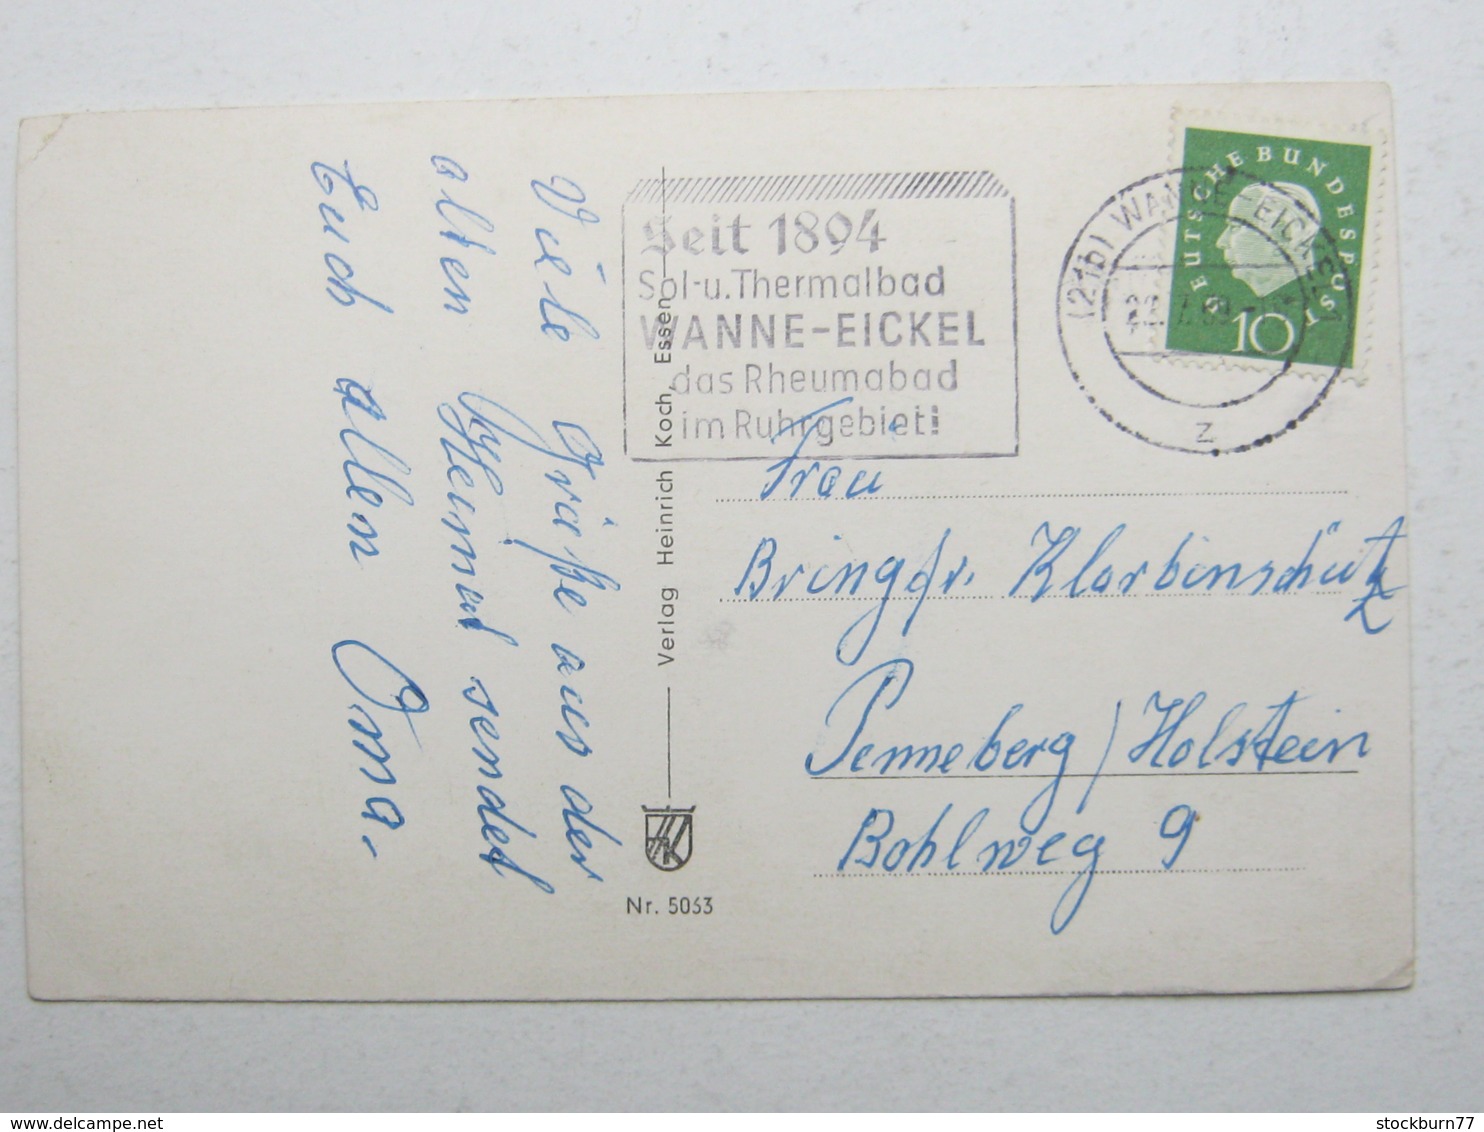 Viele Grüße aus der
alten Heimat sendet
Euch allen Oma.
Verlag Heinrich Koch, Essen
Nr. 5063
Seit 1894
Sol-u.Thermalbad
WANNE-EICKEL
das Rheumabad
im Ruhrgebiet!
(21b) WANNE-EICKEL
z
DEUTSCHE BUNDESPOST
10
Frau
Klarbinschütz
Penneberg / Holstein
Bohlweg 9
stockburn77